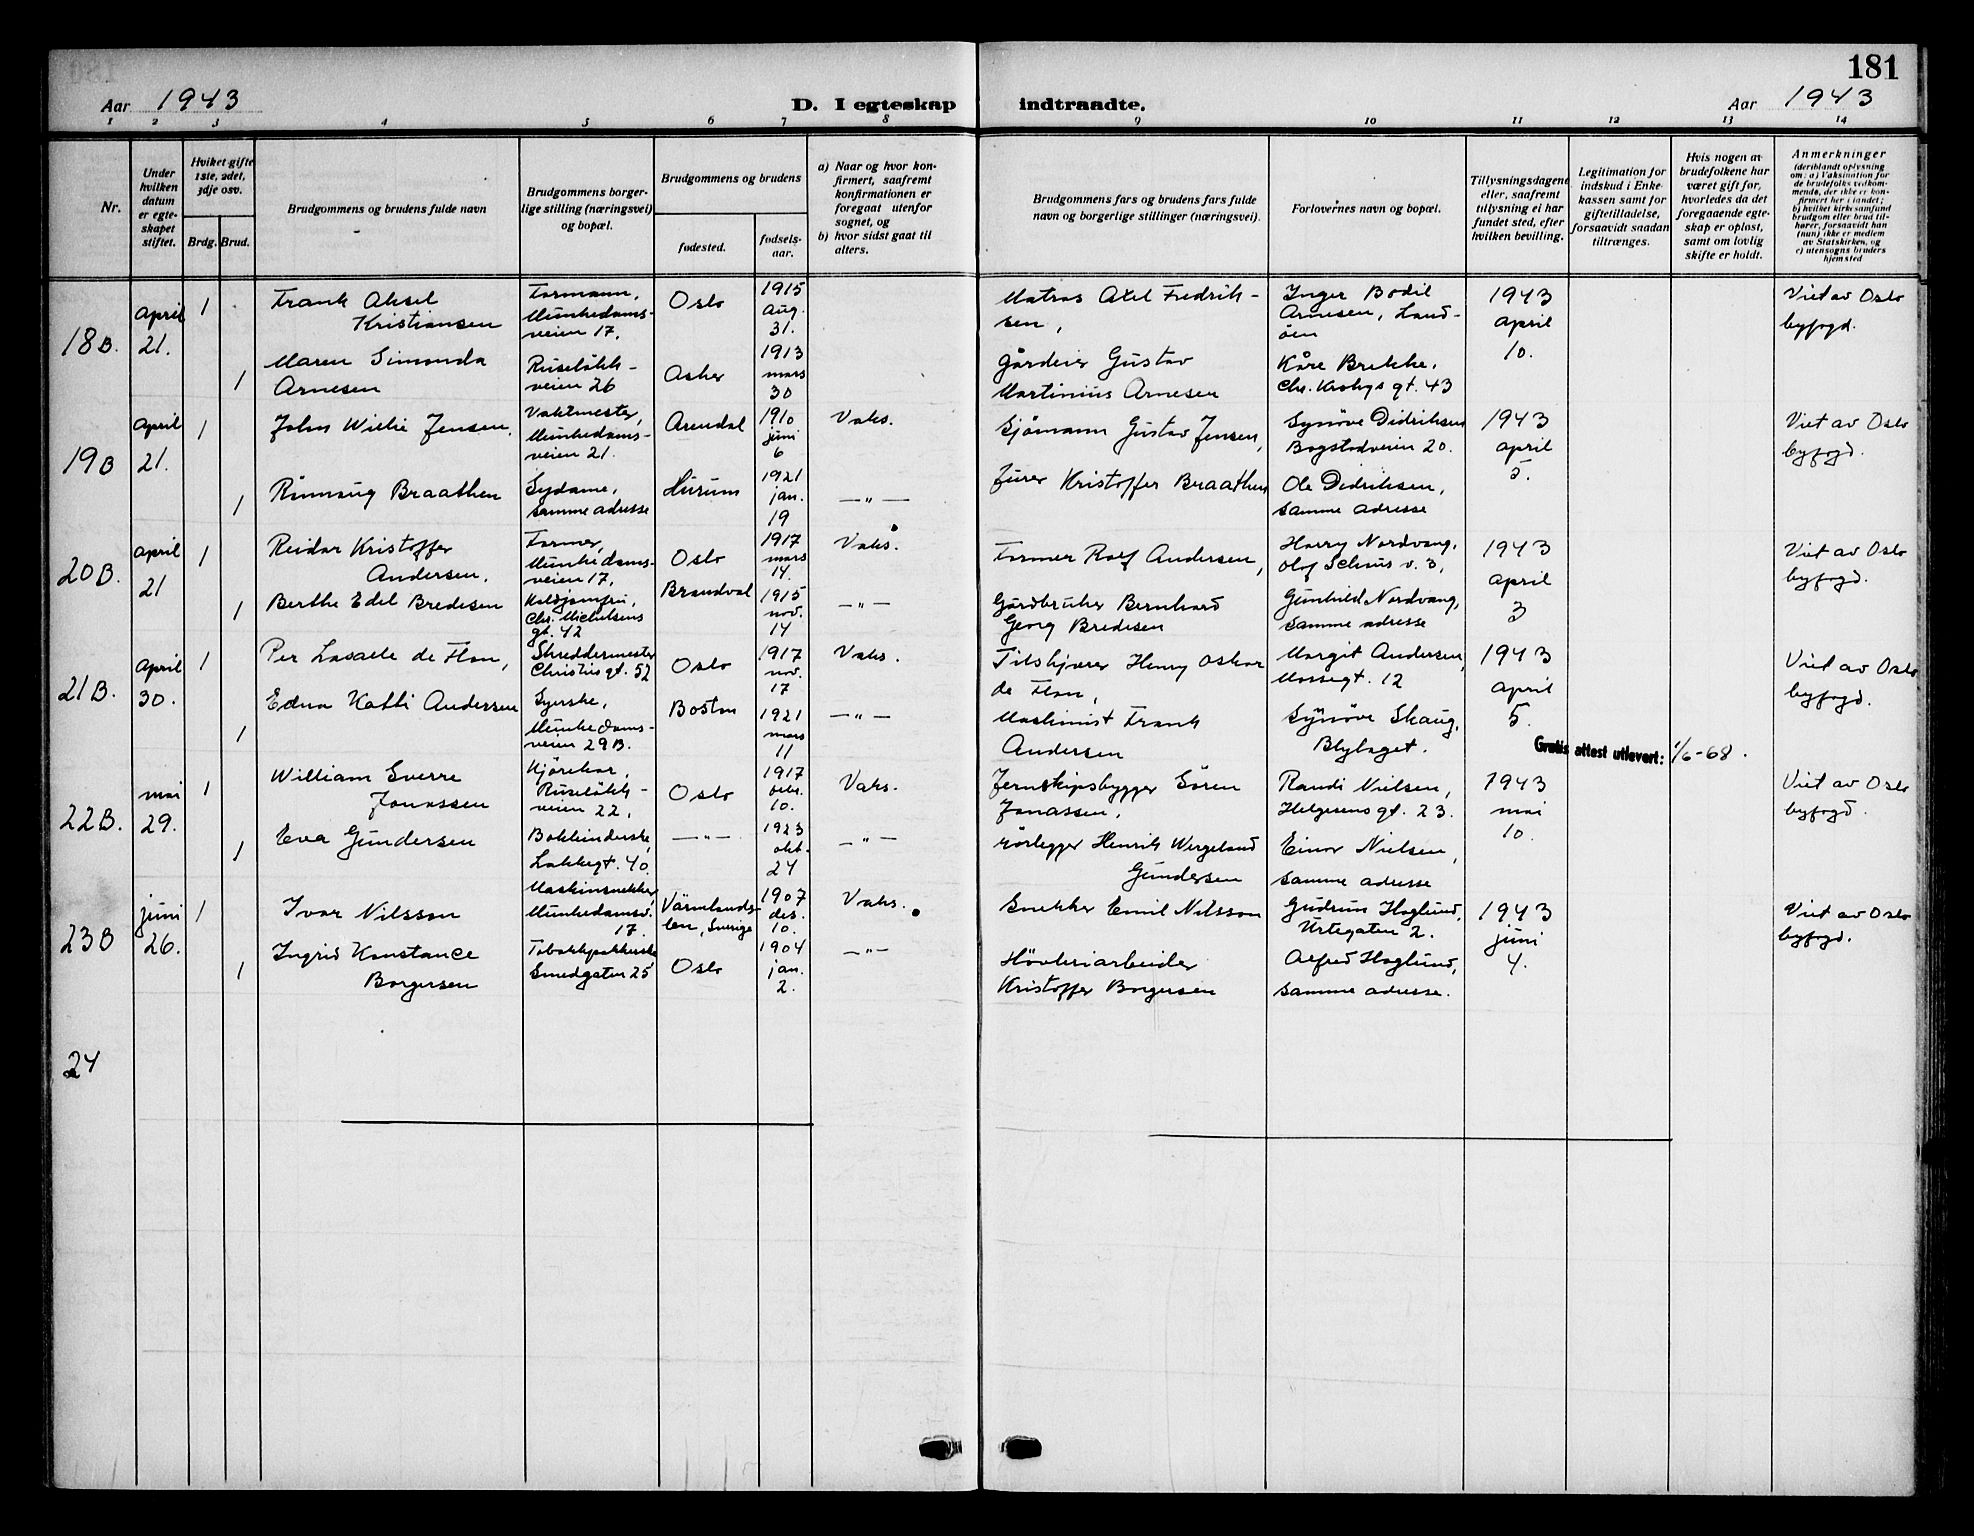 181
Aar 1943
D. I egteskap indtraadte.
Aar 1943
1 2 3 4 5 6 7 8 9 10 11 12 13 14
Nr.
Under
hvilken
datum
er egte-
skapet
stiftet.
Hvilket gifte
1ste, 2det,
3dje osv.
Brdg. Brud.
Brudgommens og brudens fulde navn
Brudgommens borger-
lige stilling (næringsvei)
og bopæl.
Brudgommens og brudens
fødested.
fødsels-
aar.
a) Naar og hvor kon-
firmert, saafremt
konfirmationen er
foregaat utenfor
sognet, og
b) hvor sidst gaat til
alters.
Brudgommens fars og brudens fars fulde
navn og borgerlige stillinger (næringsvei).
Forlovernes navn og bopæl.
Tillysningsdagene
eller, saafremt
tillysning ei har
fundet sted, efter
hvilken bevilling.
Legitimation for
indskud i Enke-
kassen samt for
giftetilladelse,
forsaavidt saadan
tiltrænges.
Hvis nogen av
brudefolkene har
været gift før,
hvorledes da det
foregaaende egte-
skap er opløst,
samt om lovlig
skifte er holdt.
Anmerkninger
(deriblandt oplysning
om: a) Vaksination for
de brudefolks vedkom-
mende, der ikke er kon-
firmert her i landet;
b) hvilket kirkesamfund
brudgom eller brud til-
hører, forsaavidt han
(hun) ikke er medlem
av Statskirken, og
c) utensogns bruders
hjemsted
18B.
april
21.
1
Frank Aksel
Kristiansen
Formann,
Munkedams-
veien 17.
Oslo
1915
aug.
31.
Matros Axel Fredrik-
sen,
Inger Bodil
Arnesen, Land-
öen
1943
april
10.
Viet av Oslo
byfogd.
1
Maren Simonda
Arnesen
Ruselökk-
veien 26
Asker
1913
mars
30
Gårdeier Gustav
Martinius Arnesen
Kåre Brekke.
Chr. Krohgs gt. 43
19B
april
21.
1
John Willie Jensen.
Vaktmester,
Munkedams-
veien 21.
Arendal
1910
juni
6
Vaks.
Sjömann Gustav Jensen,
Synöve Didriksen
Bogstadveien 20.
1943
april
5.
Viet av Oslo
byfogd.
1
Rannaug Braathen
Sydame,
samme adresse
Hurum
1921
jan.
19
— " —
Kristoffer Braathen
Ole Didriksen,
samme adresse
20B.
april
21
1
Reidar Kristoffer
Andersen.
Former,
Munkedams-
veien 17.
Oslo
1917
mars
14.
Vaks.
Former Rolf Andersen,
Harry Nordvang,
Olaf Schous v. 3,
1943
april
3
Viet av Oslo
byfogd.
1
Berthe Edel Bredesen
Koldjomfru,
Chr. Michelsens
gt. 42
Brandval
1915
nov.
14
— " —
Gårdbruker Bernhard
Georg Bredesen
Gunhild Nordvang,
samme adresse
21B.
april
30.
1
Per Lasalle de Flon,
Skreddermester
Christiesgt. 52
Oslo
1917
nov.
17
Vaks.
Tilskjærer Henry Oskar
de Flon,
Margit Andersen,
Mossegt. 12
1943
april
5.
Viet av Oslo
byfogd.
1
Edna Katti Andersen
Syerske,
Munkedams-
veien 29B.
Boston
1921
mars
11
— " —
Maskinist Frank
Andersen
Synöve Skaug,
Blylaget.
Gratis attest utlevert: 1/6-68.
22B.
mai
29.
1
William Sverre
Jonassen
Kjörekar,
Ruselökk-
veien 22,
Oslo
1917
febr.
10.
Vaks.
Jernskipsbygger Sören
Jonassen,
Randi Nielsen,
Helgesens gt. 23.
1943
mai
10.
Viet av Oslo
byfogd.
1
Eva Gundersen
Bokbinderske,
Lakkegt. 40
— " —
1923
okt.
24
— " —
Rörlegger Henrik Wergeland
Gundersen
Einar Nielsen,
samme adresse
23B
juni
26.
1
Ivar Nilsson
Maskinsnekker,
Munkedamsv.
17.
Värmlands-
bro, Sverige
1907
des.
10.
Vaks.
Snekker Emil Nilsson
Gudrun Hoglund,
Urtegaten 2.
1943
juni
4.
Viet av Oslo
byfogd.
1
Ingrid Konstance
Borgersen
Tobakkpakkerske
Smedgaten 25
Oslo
1904
jan.
2.
— " —
Hövleriarbeider
Kristoffer Borgersen
Alfred Hoglund,
samme adresse.
24